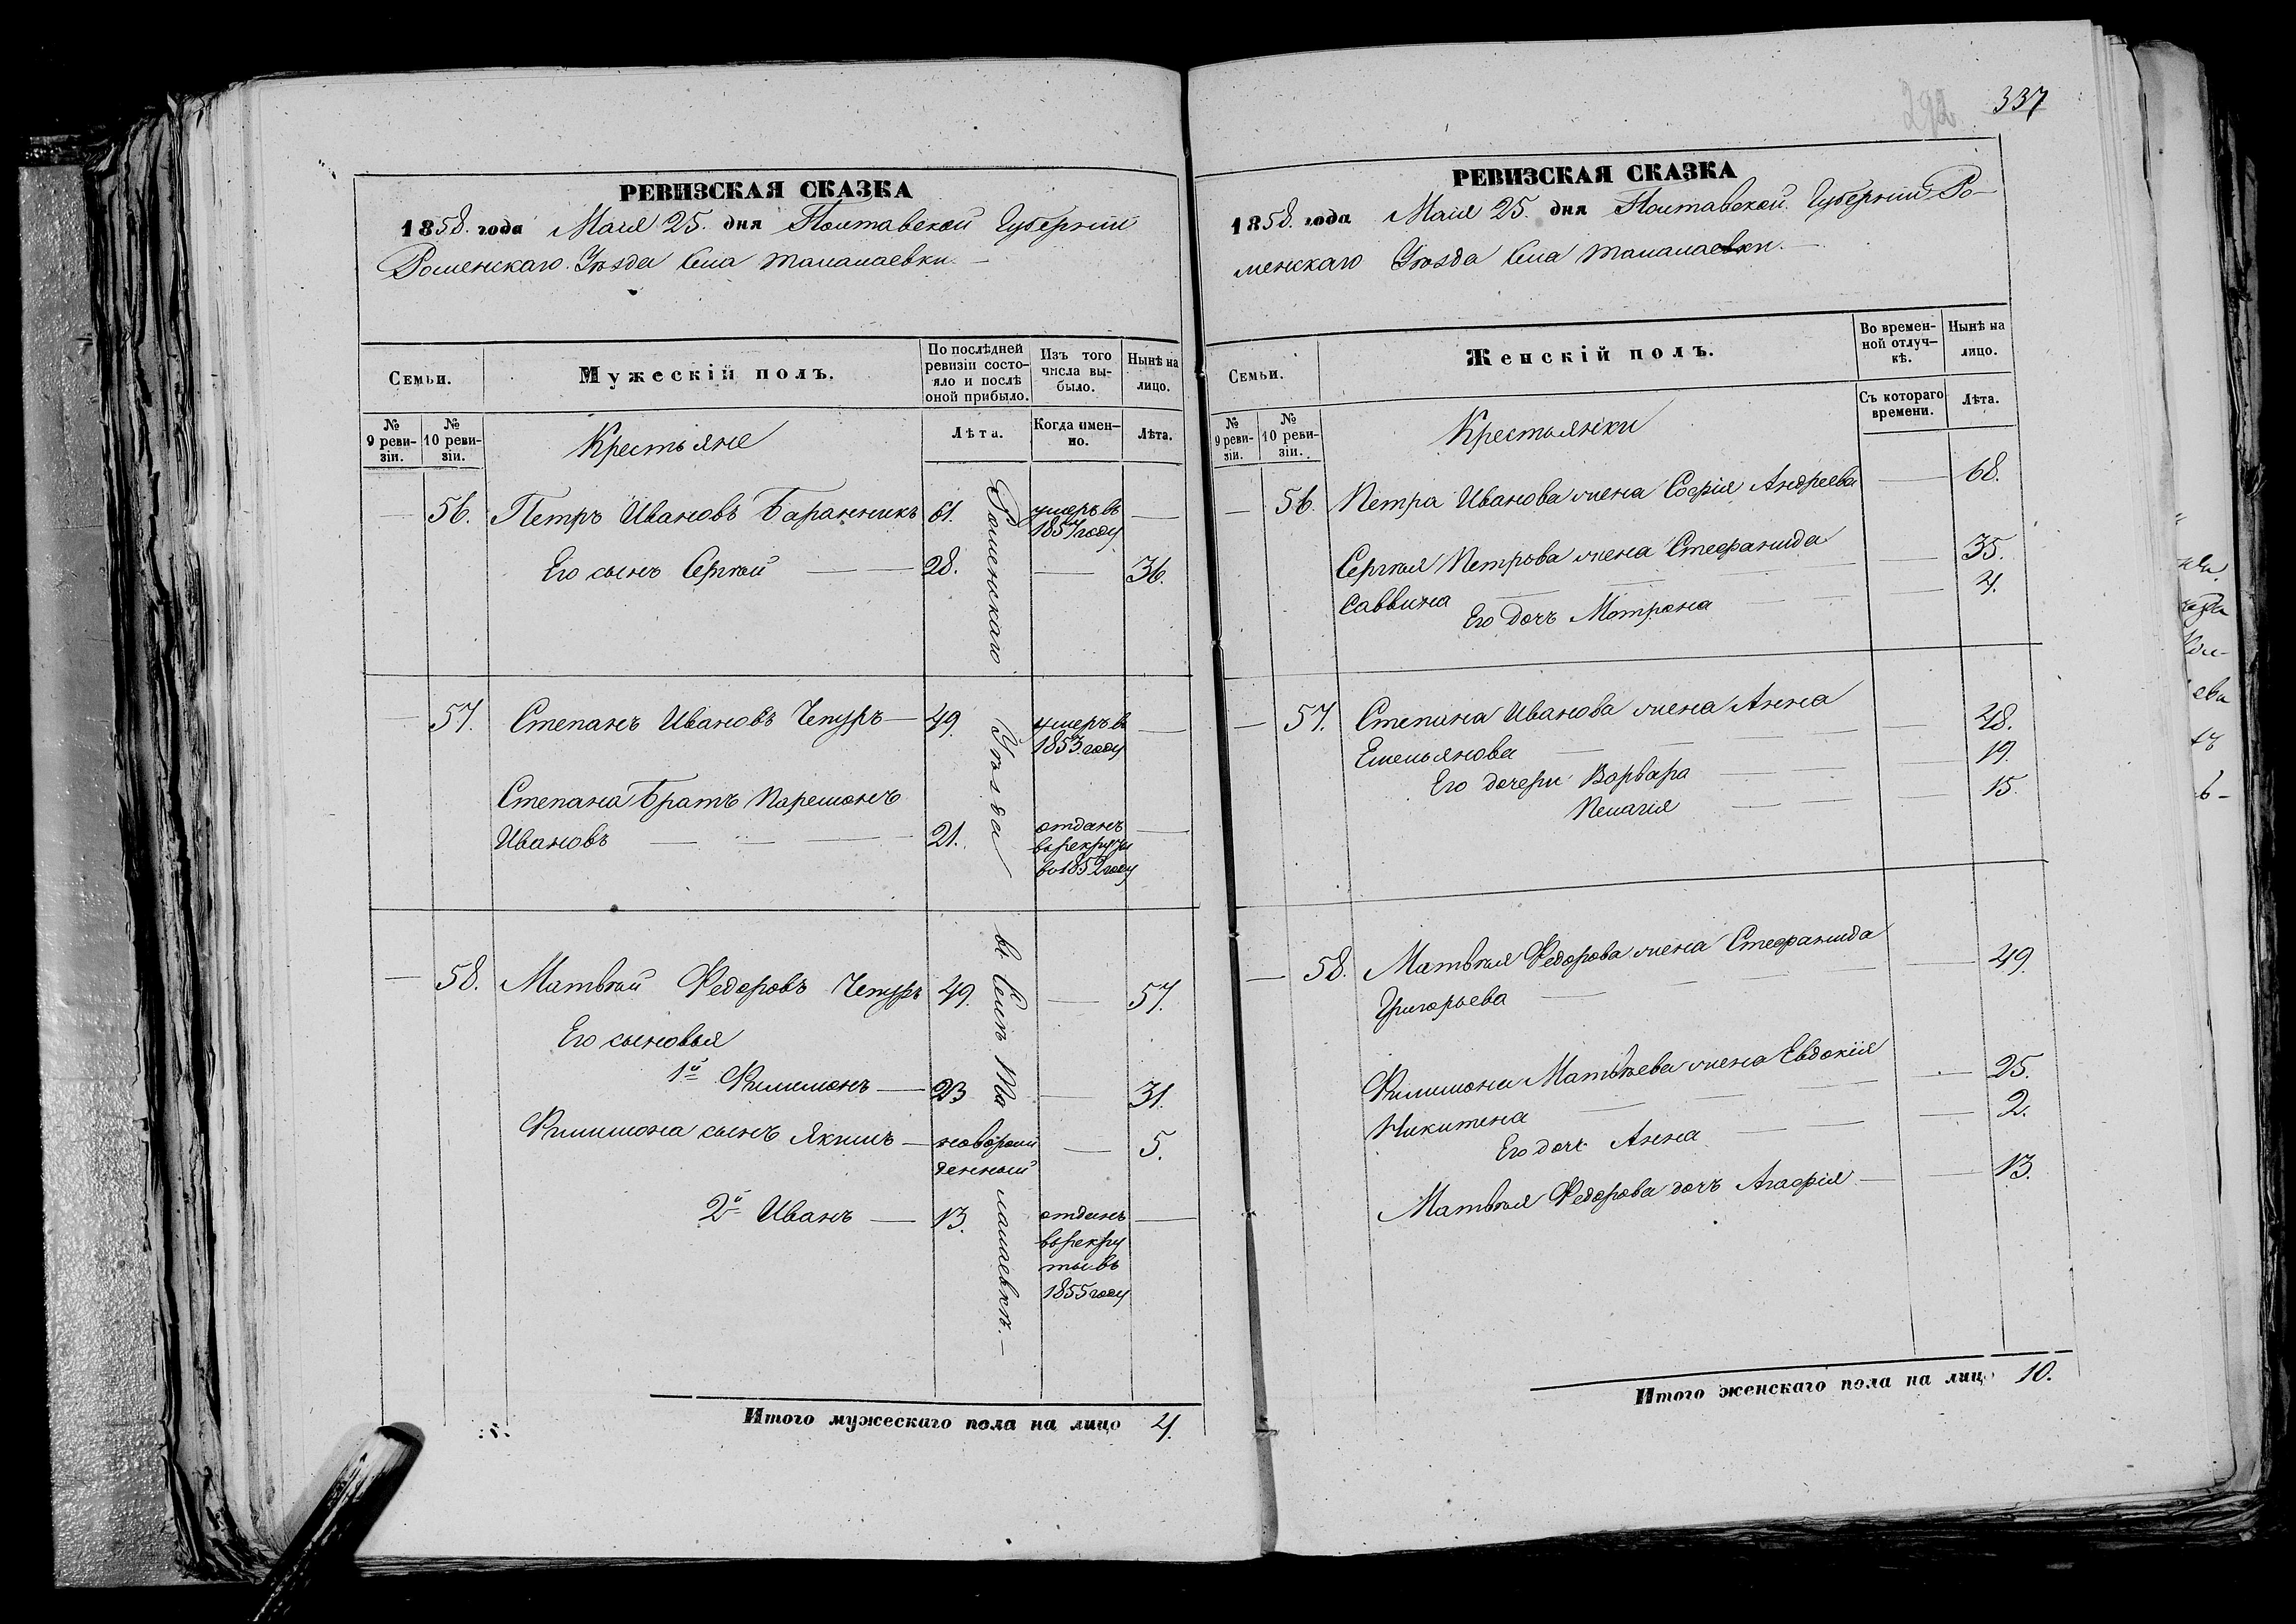 РЕВИЗСКАЯ СКАЗКА
1858. года Маія 25. дня Полтавской Губерніи
Роменскаго Уѣзда Села Талалаевки.
Семьи.
Мужескій полъ.
По послѣдней ревизіи состояло и послѣ оной прибыло.
Изъ того числа выбыло.
Нынѣ на лицо.
№ 9 ревизіи.
№ 10 ревизіи.
Крестьяне
Лѣта.
Когда именно.
Лѣта.
56. Петръ Ивановъ Баранникъ 61. умеръ въ 1857 году
Его сынъ Сергѣй 28. 36.
57. Степанъ Ивановъ Чепуръ 49. умеръ въ 1853 году
Степана братъ Парѳионъ
Ивановъ 21. отданъ въ рекруты во 1852 году
58. Матвѣй Федоровъ Чепуръ 49. 57.
Его сыновья
1й Филимонъ 23 31.
Филимона сынъ Якимъ новорожденный 5.
2й Иванъ 13. отданъ въ рекруты въ 1855 году
Роменскаго Уѣзда въ Селѣ Талалаевкѣ.
Итого мужескаго пола на лицо 4.
292
337
РЕВИЗСКАЯ СКАЗКА
1858. года Маія 25. дня Полтавской Губерніи Ро-
менскаго Уѣзда Села Талалаевки.
Семьи.
Женскій полъ.
Во временной отлучкѣ.
Нынѣ на лицо.
№ 9 ревизіи.
№ 10 ревизіи.
Крестьянки
Съ котораго времени.
Лѣта.
56. Петра Иванова жена Софія Андреева 68.
Сергѣя Петрова жена Стефанида 35.
Саввина
Его дочь Мотрона 4.
57. Степана Иванова жена Анна 48.
Емельянова
Его дочери Варвара 19.
Пелагія 15.
58. Матвѣя Федорова жена Стефанида 49.
Григорьева
Филимона Матвѣева жена Евдокія 25.
Никитина
Его дочь Анна 2.
Матвѣя Федорова дочь Агафія 13.
Итого женскаго пола на лицо 10.